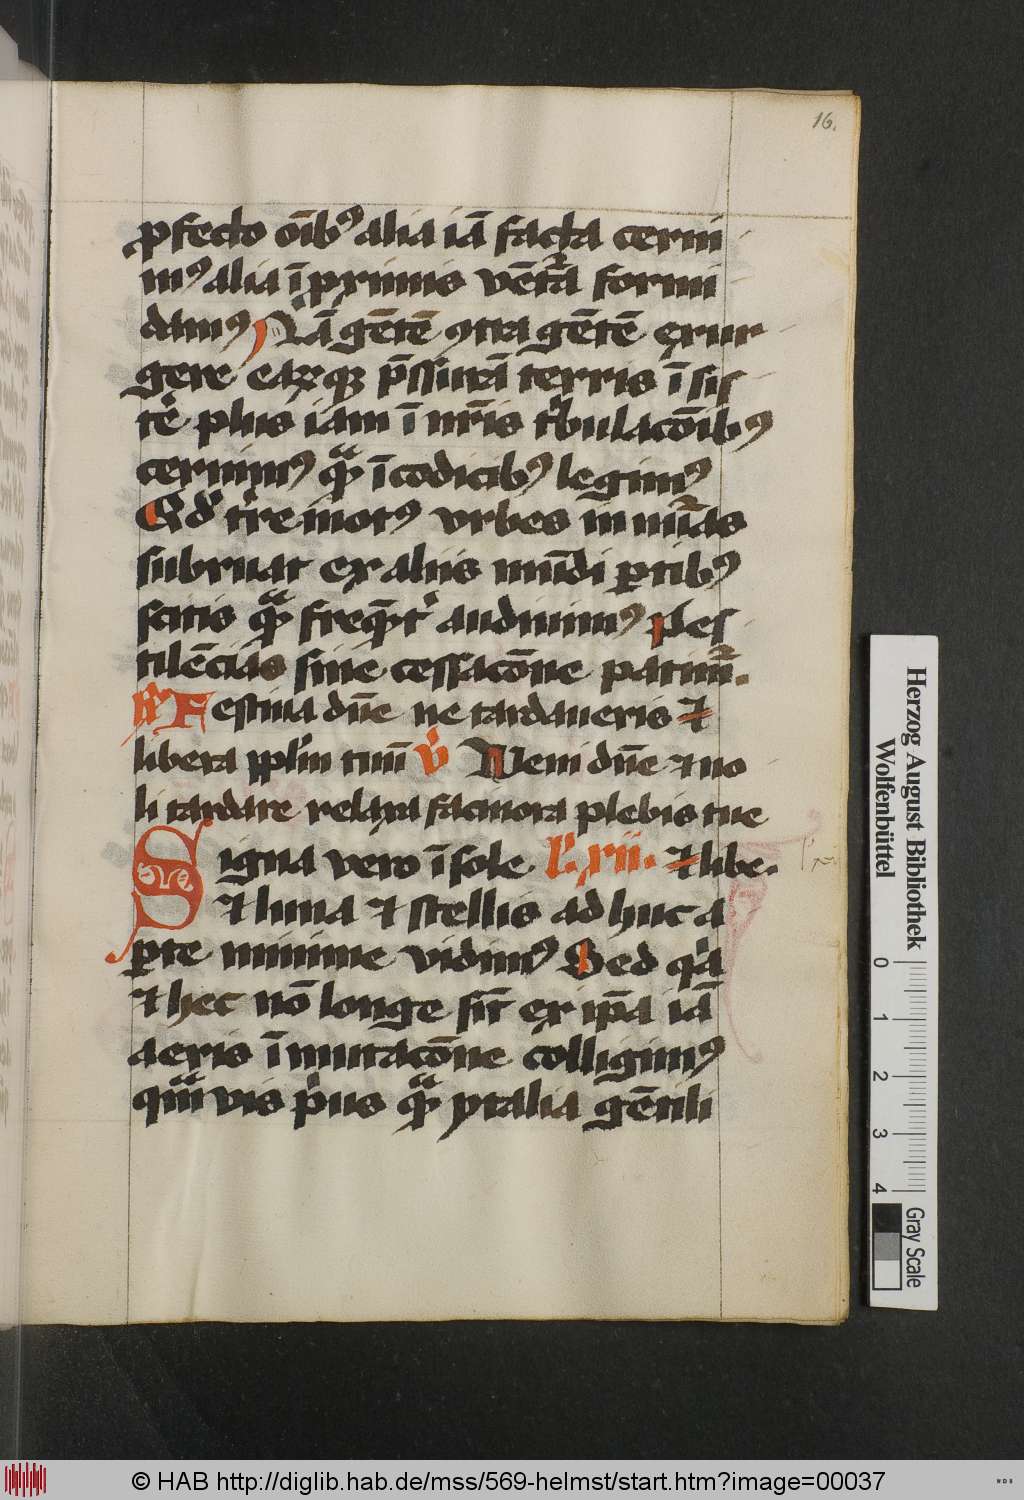 16.
ꝓfecto oı̄bꝰ alia iā facta cerni
mꝰ alia ī prximis vētᷓa formi
damꝰ Nā gētē ꝯtra gētē exur
gere earꝝ qꝫ p̄ssurā terris ī sis
tē plus iam ī nrı̄s tͥbulacōibꝰ
cernimꝰ qᷓ ī codicibꝰ legimꝰ
Qdͥ tͥre motꝰ vrbes in mūᷓas
subruat ex aliis mūdi ꝑtibꝰ
scitis qᷓ freqn̄tͥ audiuimꝰ pes
tilēcias sine cessacōne patimᷓ.
Rͫ Festina dn̄e ne tardaueris ⁊
libera ppl̄m tuū v̓ Ueni dn̄e ⁊ no
li tardare relaxa facinora plebis tue
Signa vero ī sole L. xii. ⁊ libe.
⁊ luna ⁊ stellis ad huc a
ꝑte minime vidimꝰ Sed qͥa
⁊ hec nō longe sīt ex ip̄a iā
aeris īmutacōne colligimꝰ
qūᷓuis pͥus qᷓ ytalia gētili
Herzog August Bibliothek
Wolfenbüttel
0 1 2 3 4
Gray Scale
© HAB http://diglib.hab.de/mss/569-helmst/start.htm?image=00037